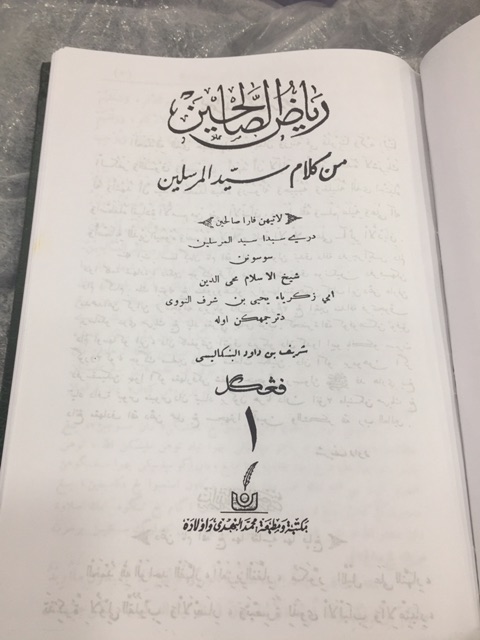 رياض الصالحين
من كلام سيد المرسلين
لاتيهن ڤارا صالحين
دري سبدا سيد المرسلين
سوسونن
شيخ الاسلام محى الدين
ابي زكرياء يحيى بن شرف النووى
دترجمهكن اوله
شريف بن داود البنكاليسى
ڤڠݢل
١
مكتبة ومطبعة محمد النهدي واولاده